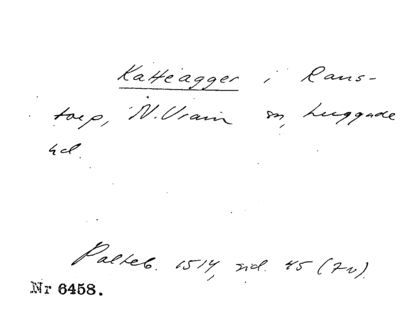 Katteagger i Rans-
torp, N. Vram sn, Luggude
hd.
Palteb. 1514, sid. 45 (7v).
Nr 6458.